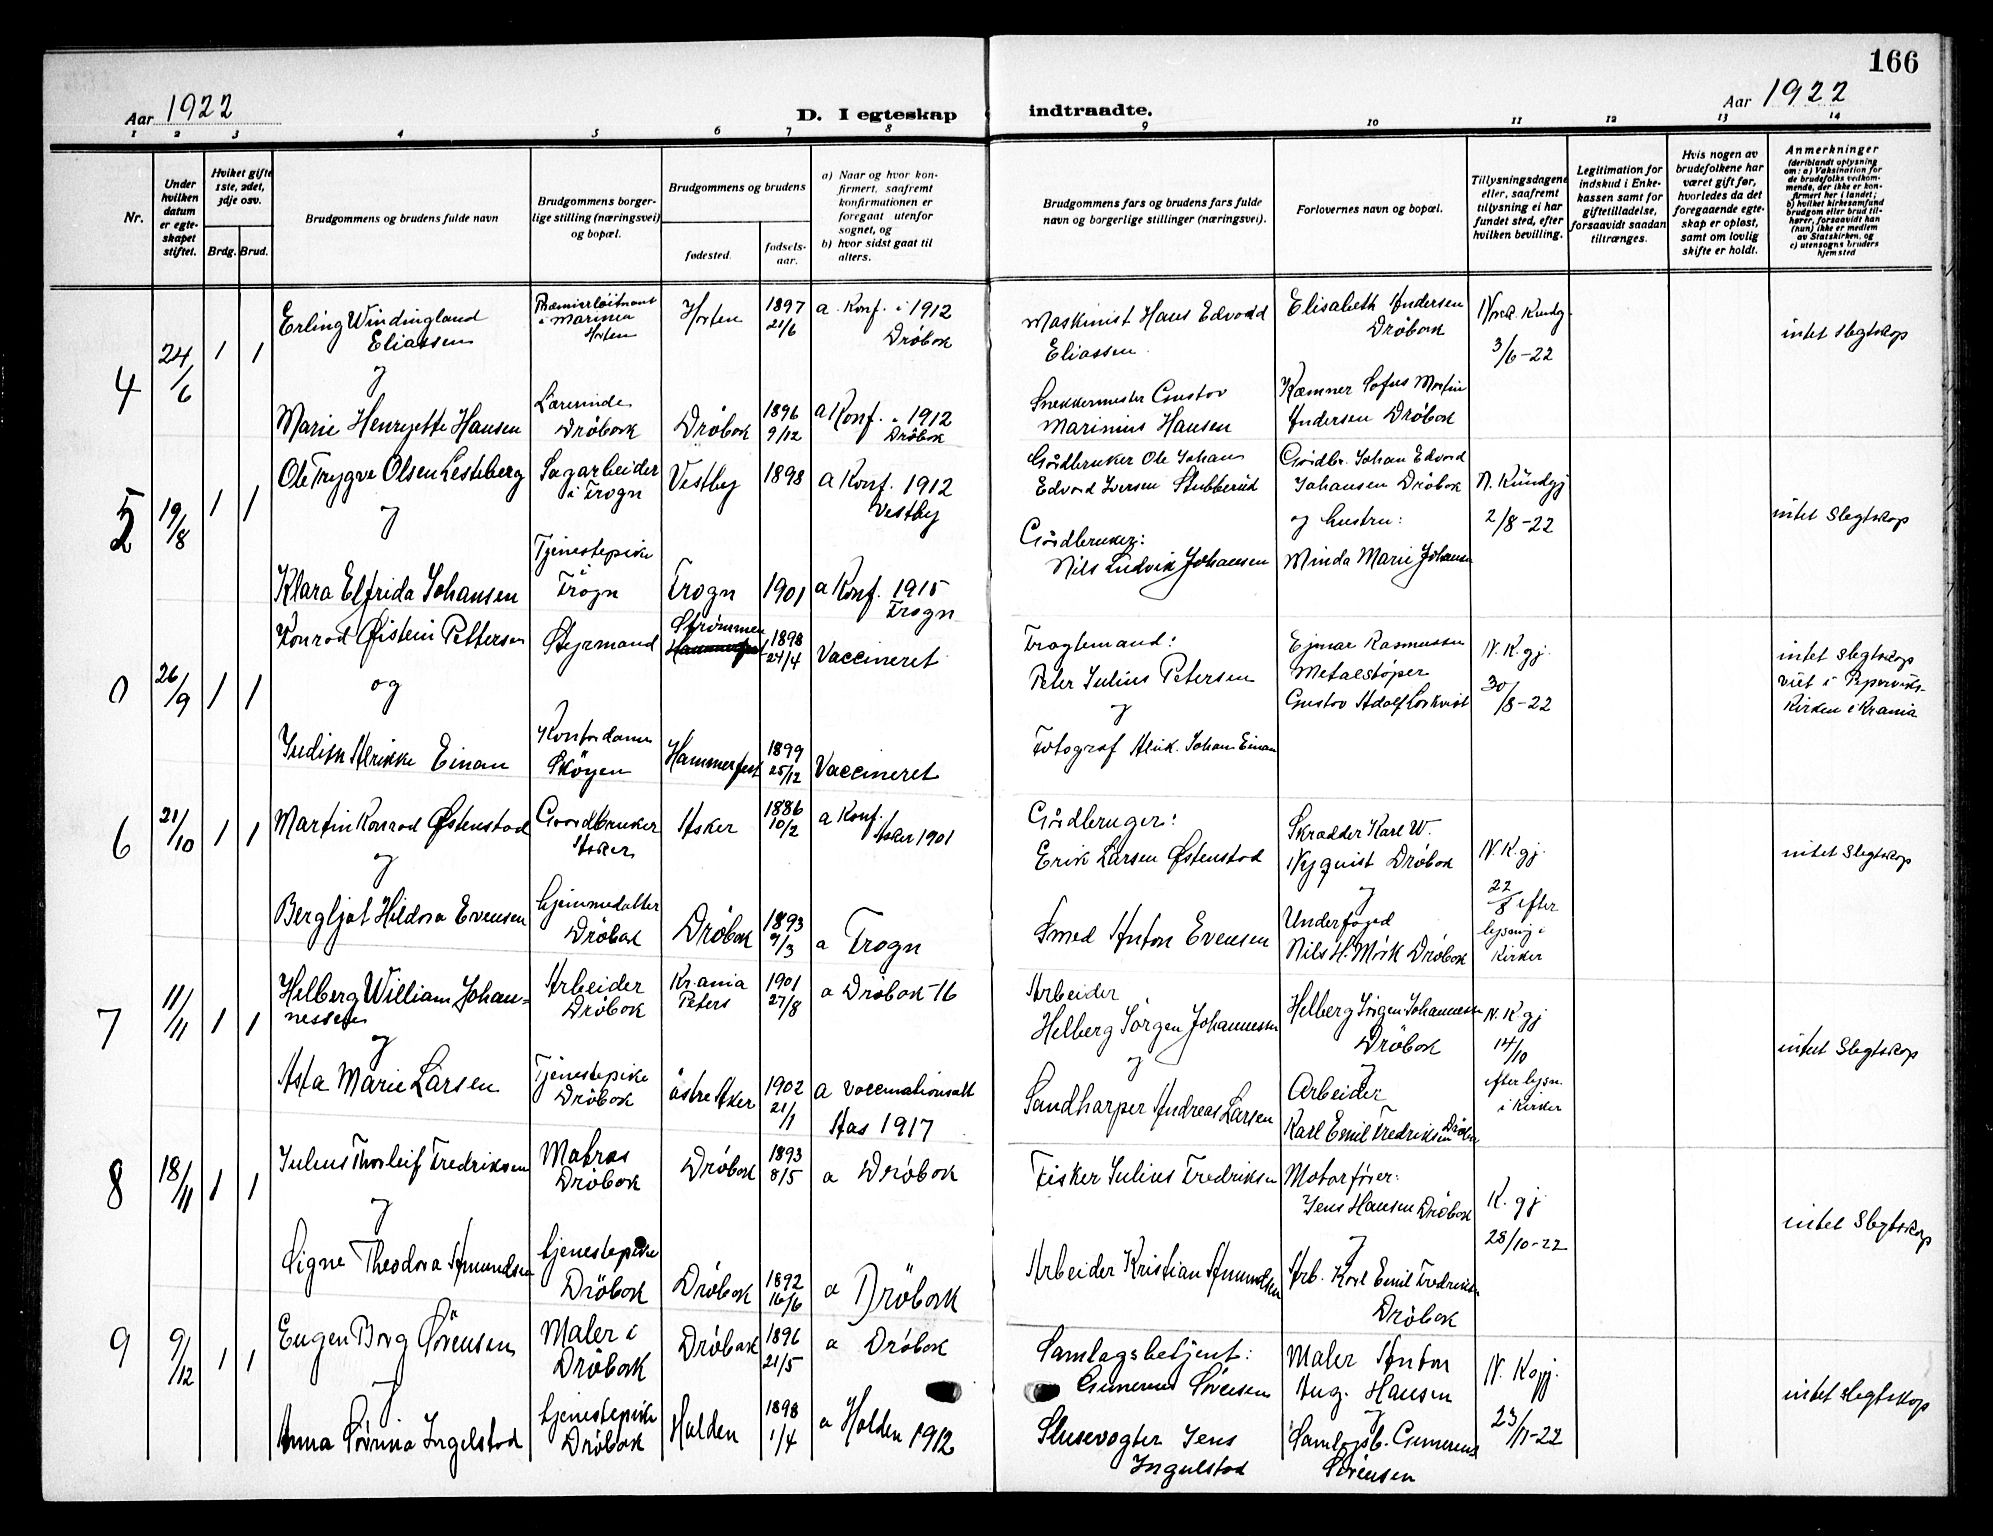 166
Aar 1922
D. I egteskap indtraadte.
Aar 1922
1 2 3 4 5 6 7 8 9 10 11 12 13 14
Nr.
Under hvilken datum er egteskapet stiftet.
Hvilket gifte 1ste, 2det, 3dje osv.
Brdg. Brud.
Brudgommens og brudens fulde navn
Brudgommens borgerlige stilling (næringsvei) og bopæl.
Brudgommens og brudens
fødested. fødselsaar.
a) Naar og hvor konfirmert, saafremt konfirmationen er foregaat utenfor sognet, og
b) hvor sidst gaat til alters.
Brudgommens fars og brudens fars fulde navn og borgerlige stillinger (næringsvei).
Forlovernes navn og bopæl.
Tillysningsdagene eller, saafremt tillysning ei har fundet sted, efter hvilken bevilling.
Legitimation for indskud i Enkekassen samt for giftetilladelse, forsaavidt saadan tiltrænges.
Hvis nogen av brudefolkene har været gift før, hvorledes da det foregaaende egteskap er opløst, samt om lovlig skifte er holdt.
Anmerkninger
(deriblandt oplysning om: a) Vaksination for de brudefolks vedkommende, der ikke er konfirmert her i landet; b) hvilket kirkesamfund brudgom eller brud tilhører, forsaavidt han (hun) ikke er medlem av Statskirken, og c) utensogns bruders hjemsted
4
24/6
1 1
Erling Windingland
Eliassen
og
Marie Henryette Hansen
Premierløitnant
i Marinen
Horten
Lærerinde
Drøbak
Horten
Drøbak
1897
21/6
1896
9/12
a. Konf. i 1912
Drøbak
a Konf. i 1912
Drøbak
Maskinist Hans Edvard
Eliassen.
Snekkermester Gustav
Marinius Hansen
Elisabeth Andersen
Drøbak
Kæmner Sofus Martin
Andersen Drøbak
3/6-22
intet slegtskap
5
19/8
1 1
Ole Trygve Olsen Lesteberg
og
Klara Elfrida Johansen
Sagarbeider
i Frogn
Tjenestepike
i
Frogn
Vestby
Frogn
1898
1901
a Konf. 1912
Vestby
a Konf. 1915
Frogn
Gårdbruker Ole Johans
Edvard Iversen Stubberud
Gårdbruker:
Nils Ludvik Johansen
Gårdbr. Johan Edvard
Johansen Drøbak
og hustru:
Minda Marie Johansen
N. Kundgj
2/8-22
intet Slegtskap
0
26/9
1 1
Konrad Øistein Pettersen
og
Einan
Styrmand
Kontordame
Skøyen
Strømmen
Hammerfest
Hammerfest
1898
24/4
1899
25/12
Vaccineret
Vaccineret
Fragtemand:
Peter Julius Petersen
og
Fotograf Alrik. Johan Einan
Ejnar Rasmussen
Metalstøper
Gustav Adolf
N. K. gj.
30/8-22
intet Slegtskap
viet i Pipervikskirken i Krania
6
21/10
1 1
Martin Konrad Østenstad
og
Bergljot Hildora Evensen
Gaardbruker
Asker
hjemmedatter
Drøbak
Asker
Drøbak
1886
10/2
1893
9/3
a Konf.
Asker 1901
a Frogn
Gårdbruger:
Erik Larsen Østenstad
Smed Anton Evensen
Skrædder Karl W.
Nyquist Drøbak
og
Underfoged
Nils H. Mørk Drøbak
N. K. gj.
22/8 efter
lysning i
Kirken
intet Slegtskap
7
11/11
1 1
Helberg William Johannessen
og
Asta Marie Larsen
Arbeider
Drøbak
Tjenestepike
Drøbak
Kr.ania
Peters
østre Aker
1901
27/8
1902
21/1
a Drøbak -16
a vaccinationsatt
Aas 1917
Arbeider
Helberg Jørgen Johannessen
og
Sandharper Andreas Larsen
Helberg Jørgen Johannessen
Drøbak
og
Arbeider
Karl Emil Fredriksen Drøbak
N. K gj
14/10
efter lysn.
i kirken
intet Slegtskap
8
18/11
1 1
Julius Thorleif Fredriksen
og
Signe Theodora Amundsen
Matros
Drøbak
tjenestepike
Drøbak
Drøbak
Drøbak
1893
8/5
1892
16/6
a Drøbak
a Drøbak
Fisker Julius Fredriksen
Arbeider Kristian Amundsen
Motorfører:
Jens Hansen Drøbak
og
Arb. Karl Emil Fredriksen
Drøbak
K. gj
28/10-22
intet Slegtskap
9
9/12
1 1
Eugen Borg Sørensen
og
Anna Sørina Ingelstad
Maler i
Drøbak
tjenestepike
Drøbak
Drøbak
Halden
1896
21/5
1898
1/4
a Drøbak
a Halden 1912
Samlagsbetjent:
Gunerius Sørensen
Slusevogter Jens
Ingelstad
Maler Anton
Aug. Hansen
og
Samlagsb. Gunerius
Sørensen
N. Kgj.
23/11-22
intet slegtskap